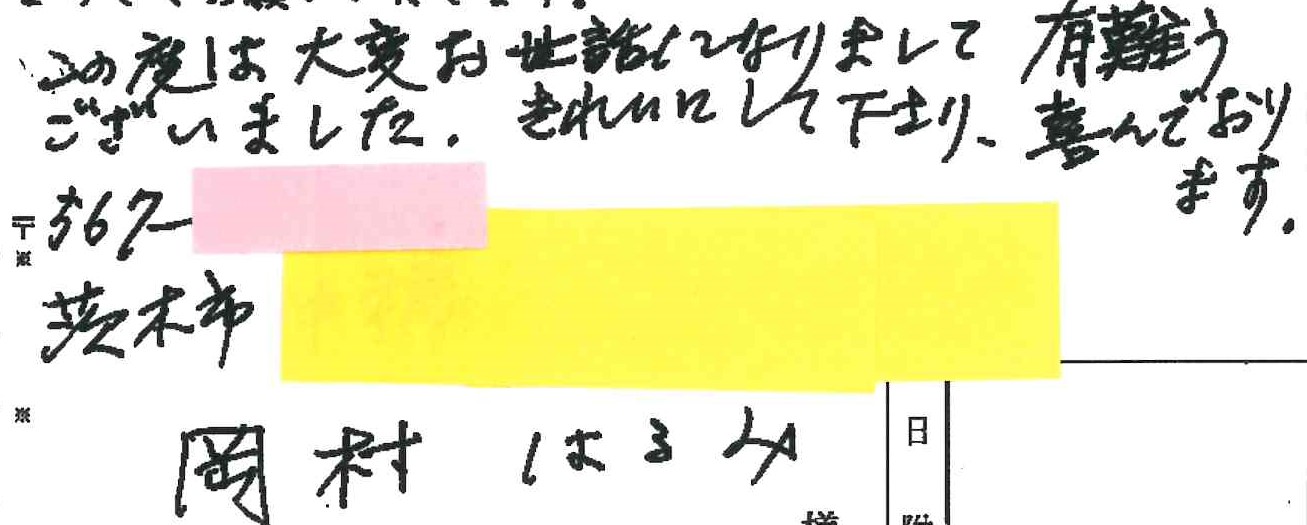 この度は大変お世話になりまして有難う
ございました。きれいにして下さり、喜んでおり
ます。
〒567-
※
茨木市
※
岡村 はるみ
様
日附